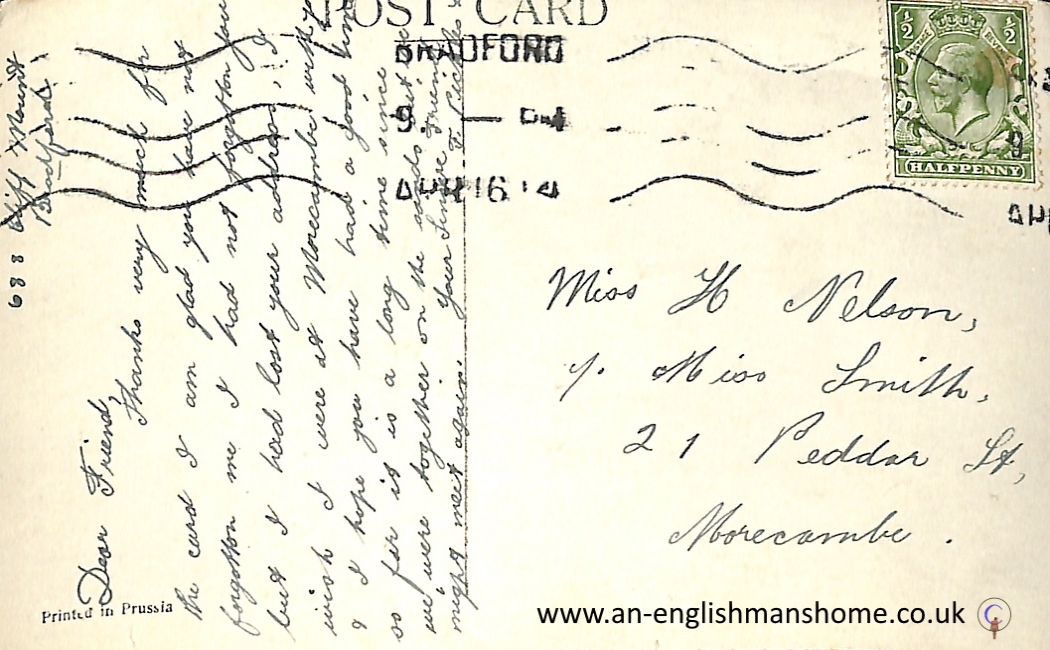 POST CARD
BRADFORD
9.
APR 16 14
HALFPENNY
688 Cliff Mount
Bradford
Dear Friend,
Thanks very much for
the card I am glad you have not
forgotton me I had not forgotton you
but I had lost your address, I
wish I were at Morecambe with you
& I hope you have had a good time
so far it is a long time since
we were together on the sands but
might meet again. Your Sincere Friend
F. Pickles
Miss H Nelson,
℅. Miss Smith,
21 Peddar St,
Morecambe.
Printed in Prussia
www.an-englishmanshome.co.uk